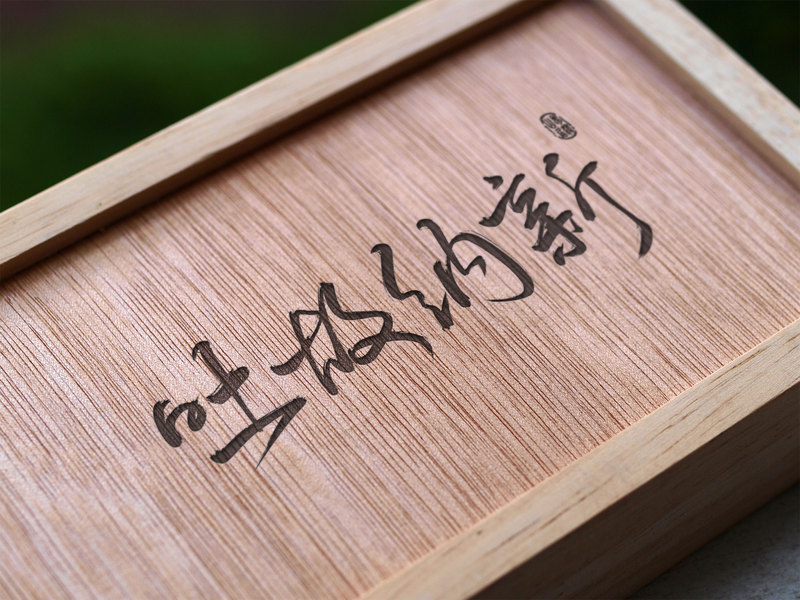 吐故纳新